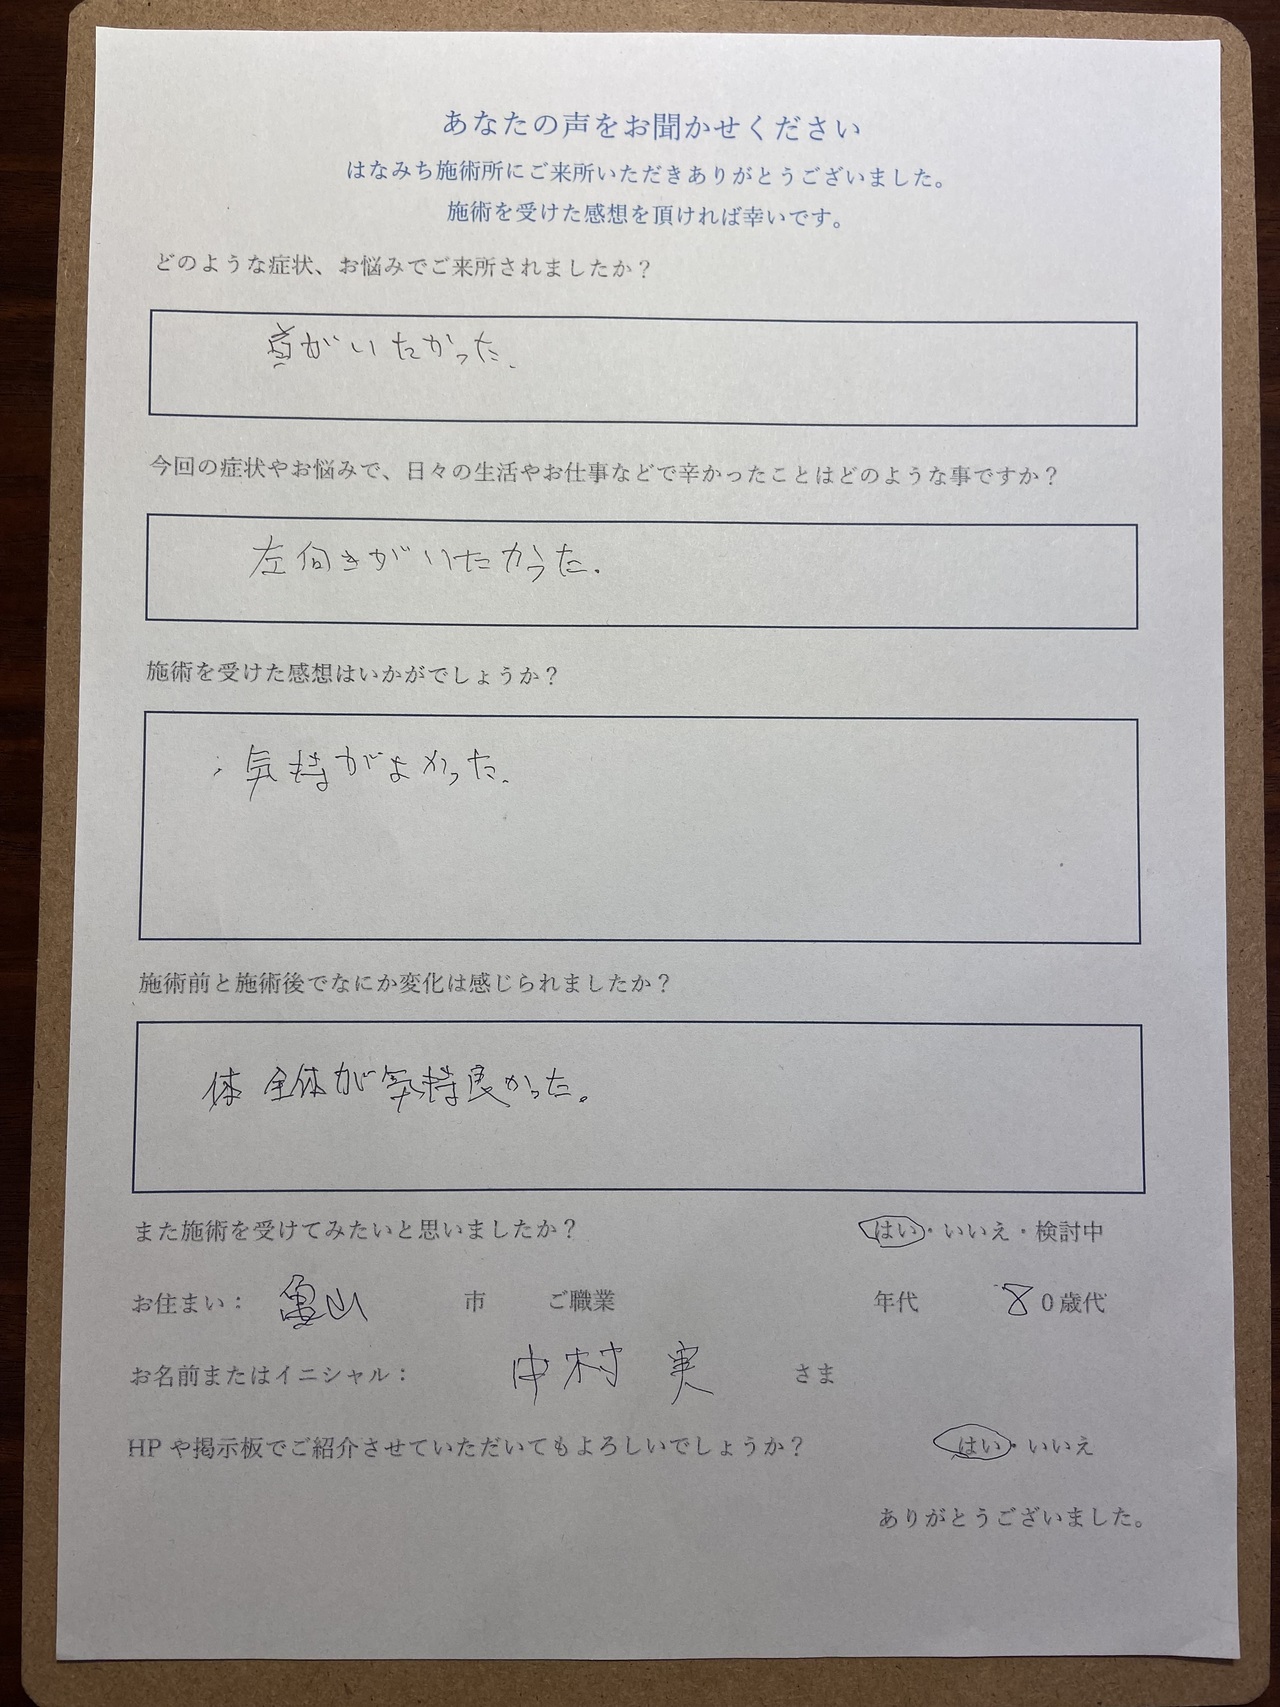 あなたの声をお聞かせください
はなみち施術所にご来所いただきありがとうございました。
施術を受けた感想を頂ければ幸いです。
どのような症状、お悩みでご来所されましたか？
首がいたかった.
今回の症状やお悩みで、日々の生活やお仕事などで辛かったことはどのような事ですか？
左向きがいたかった.
施術を受けた感想はいかがでしょうか？
気持がよかった.
施術前と施術後でなにか変化は感じられましたか？
体全体が気持良かった。
また施術を受けてみたいと思いましたか？ はい・いいえ・検討中
お住まい： 亀山 市 ご職業 年代 80歳代
お名前またはイニシャル： 中村 実 さま
HPや掲示板でご紹介させていただいてもよろしいでしょうか？ はい・いいえ
ありがとうございました。